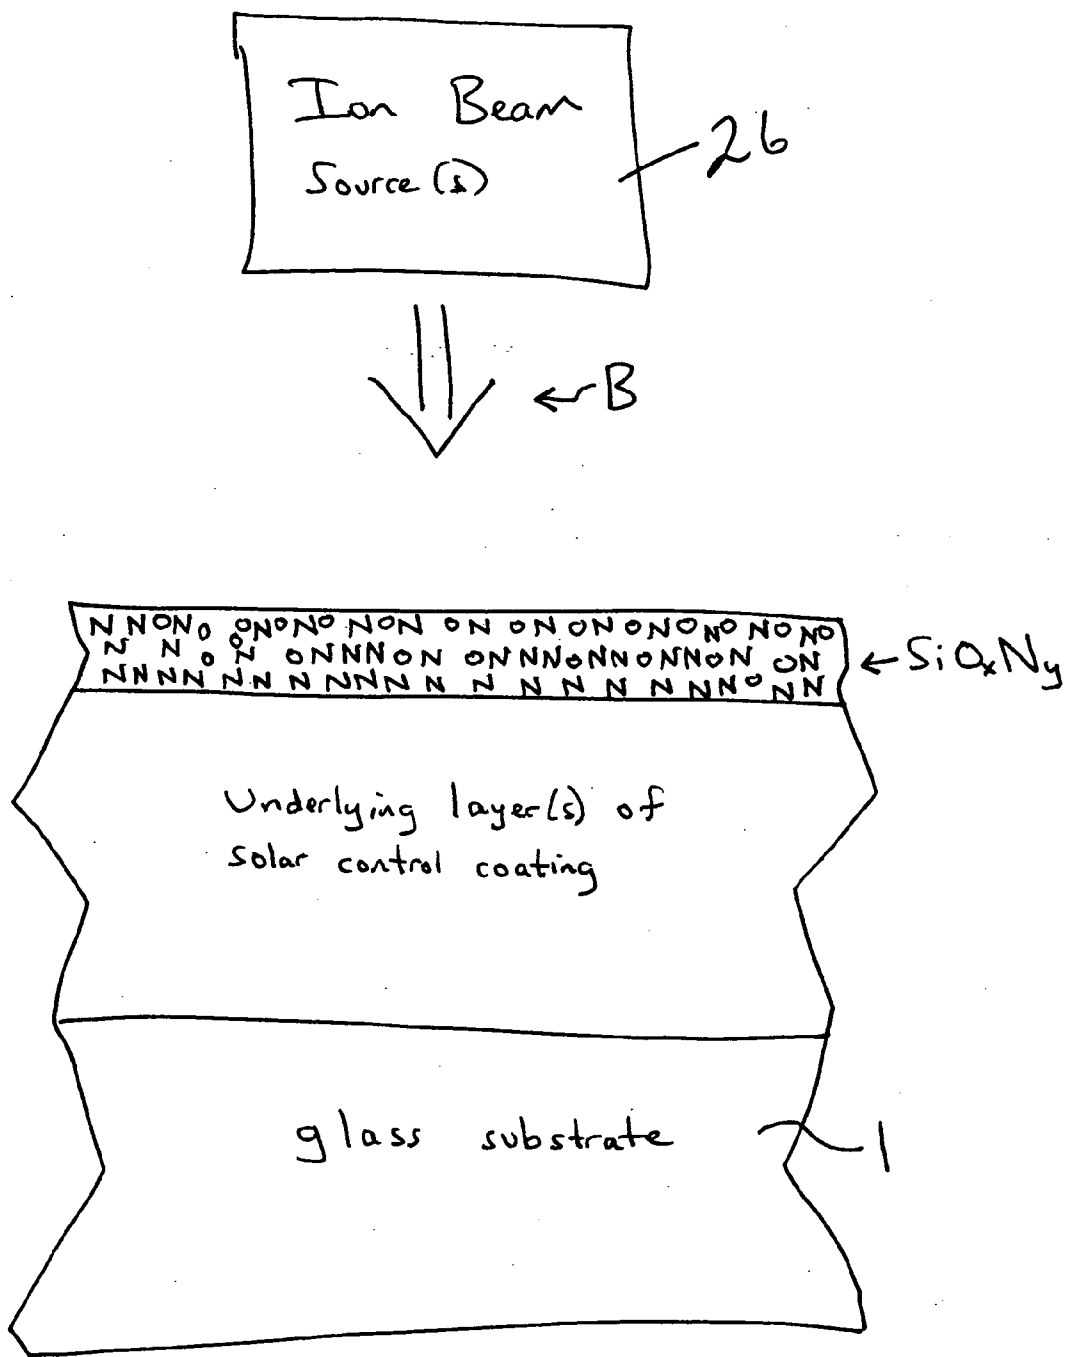 Ion Beam
Source(s)
26
B
NNONO ONONO NON ON ON ON ONONO NONO
N N O O N ONNNON ONNNONNONNON ON
NNNN NN N NNN N N N N N N NNO NN
SiOxNy
Underlying layer(s) of
solar control coating
glass substrate
1